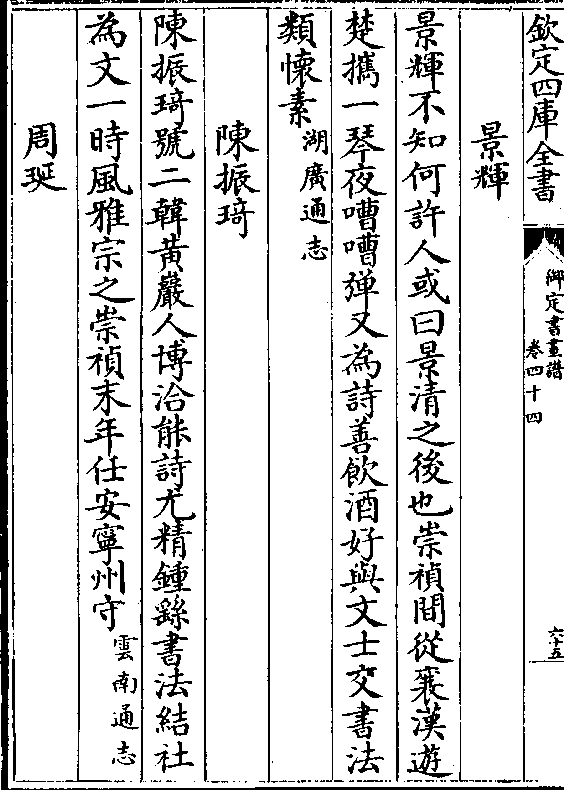 欽定四庫全書
御定書畫譜
卷四十四
六十五
景輝
景輝不知何許人或曰景清之後也崇禎間從襄漢遊
楚攜一琴夜嘈嘈弹又為詩善飲酒好與文士交書法
類懷素湖廣通志
陳振琦
陳振琦號二韓黃巖人博洽能詩尤精鍾繇書法結社
為文一時風雅宗之崇禎末年任安寧州守雲南通志
周珽